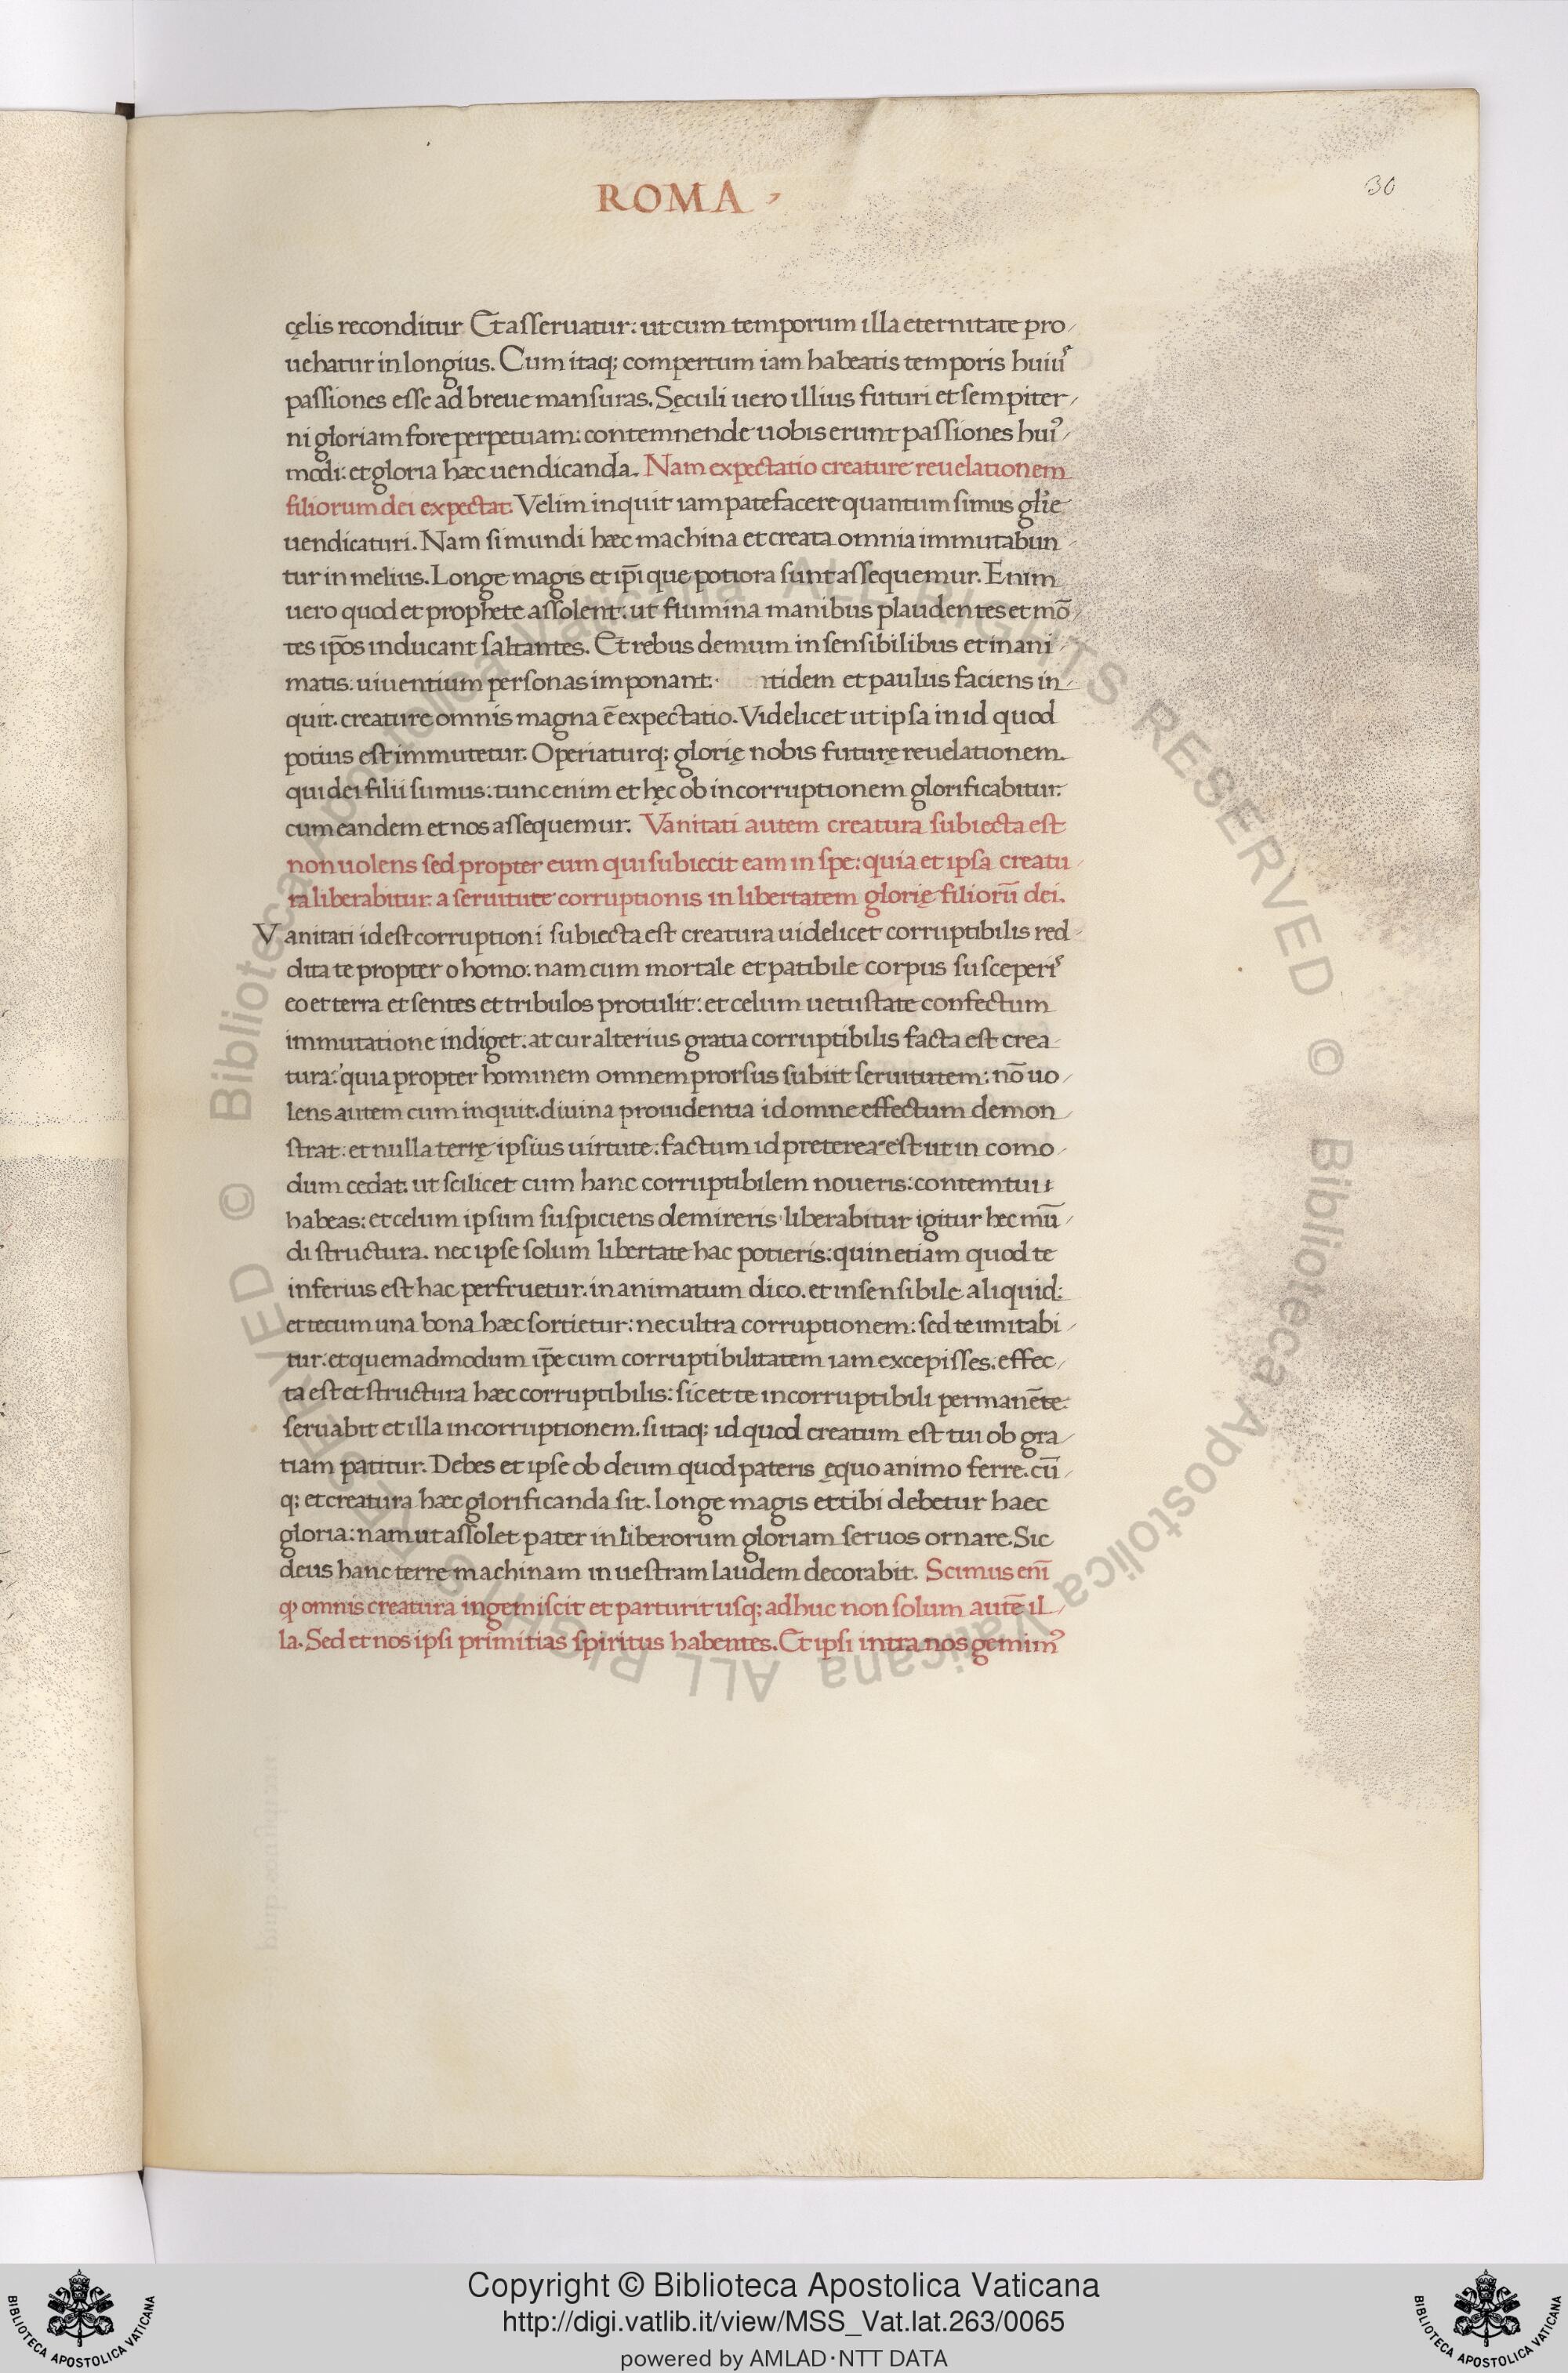 ROMA
30
cęlis reconditur Et asseruatur: ut cum temporum illa eternitate pro
uehatur in longius. Cum itaq; compertum iam habeatis temporis huiuˢ
passiones esse ad breue mansuras. Sęculi uero illius futuri et sempiter
ni gloriam fore perpetuam: contemnende uobis erunt passiones huiꝰ
modi: et gloria hæc uendicanda. Nam expectatio creature reuelationem
filiorum dei expectat. Velim inquit iam patefacere quantum simus gl̄ie
uendicaturi. Nam si mundi hæc machina et creata omnia immutabun
tur in melius. Longe magis et ip̄i que potiora sunt assequemur. Enim
uero quod et prophete assolent: ut flumina manibus plaudentes et mō
tes ip̄os inducant saltantes. Et rebus demum insensibilibus et inani
matis: uiuentium personas imponant. identidem et paulus faciens in
quit. creature omnis magna ē expectatio. Videlicet ut ipsa in id quod
potius est immutetur. Operiaturq; glorię nobis futurę reuelationem.
qui dei filii sumus: tunc enim et hęc ob incorruptionem glorificabitur.
cum eandem et nos assequemur. Vanitati autem creatura subiecta est
non uolens sed propter eum qui subiecit eam in spe: quia et ipsa creatu
ra liberabitur a seruitute corruptionis in libertatem glorię filiorū dei.
Vanitati id est corruptioni subiecta est creatura uidelicet corruptibilis red
dita te propter o homo: nam cum mortale et patibile corpus susceperiˢ
eo et terra et sentes et tribulos protulit: et celum uetustate confectum
immutatione indiget: at cur alterius gratia corruptibilis facta est crea
tura: quia propter hominem omnem prorsus subiit seruitutem: nō uo
lens autem cum inquit. diuina prouidentia id omne effectum demon
strat: et nulla terrę ipsius uirtute: factum id preterea est ut in como
dum cedat. ut scilicet cum hanc corruptibilem noueris: contemtui
habeas: et celum ipsum suspiciens demireris liberabitur igitur hec mū
di structura. nec ipse solum libertate hac potieris: quin etiam quod te
inferius est hac perfruetur. inanimatum dico. et insensibile aliquid:
et tecum una bona hæc sortietur: nec ultra corruptionem: sed te imitabi
tur: et quemadmodum ip̄e cum corruptibilitatem iam excepisses. effec
ta est et structura hæc corruptibilis: sic et te incorruptibili permanēte
seruabit et illa incorruptionem. si itaq; id quod creatum est tui ob gra
tiam patitur. Debes et ipse ob deum quod pateris ęquo animo ferre. cū
q; et creatura hæc glorificanda sit. longe magis et tibi debetur haec
gloria: nam ut assolet pater in liberorum gloriam seruos ornare. Sic
deus hanc terre machinam in uestram laudem decorabit. Scimus enī
ꝙ omnis creatura ingemiscit et parturit usq; adhuc non solum autē il
la. Sed et nos ipsi primitias spiritus habentes. Et ipsi intra nos gemimꝰ
© Biblioteca Apostolica Vaticana ALL RIGHTS RESERVED © Biblioteca Apostolica Vaticana ALL RIGHTS RESERVED
Copyright © Biblioteca Apostolica Vaticana
http://digi.vatlib.it/view/MSS_Vat.lat.263/0065
powered by AMLAD·NTT DATA
BIBLIOTECA APOSTOLICA VATICANA
BIBLIOTECA APOSTOLICA VATICANA